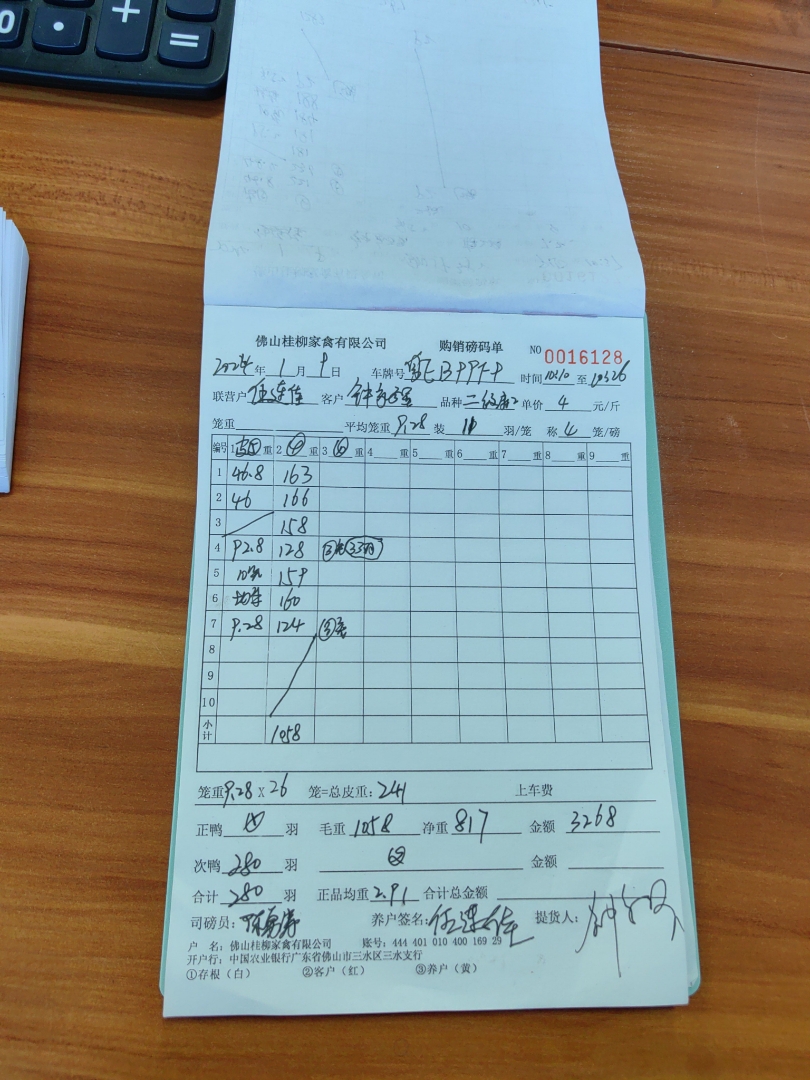 0 · + =
佛山桂柳家禽有限公司 购销磅码单 NO 0016128
2024年1月9日 车牌号 时间 10:10 至
联营户 任连佳 客户 品种 单价 4 元/斤
笼重 平均笼重 9.28 装 羽/笼 称 4 笼/磅
编号 1 重 2 ④ 重 3 重 4 重 5 重 6 重 7 重 8 重 9 重
1 46.8 163
2 46 166
3 158
4 92.8 128
5 159
6 160
7 9.28 124
8
9
10
小计 1058
笼重 9.28 X 26 笼=总皮重: 241 上车费
正鸭 羽 毛重 1058 净重 817 金额 3268
次鸭 280 羽 金额
合计 280 羽 正品均重 2.91 合计总金额
司磅员: 养户签名: 任连佳 提货人:
户 名: 佛山桂柳家禽有限公司 账号: 444 401 010 400 169 29
开户行: 中国农业银行广东省佛山市三水区三水支行
①存根(白) ②客户(红) ③养户(黄)